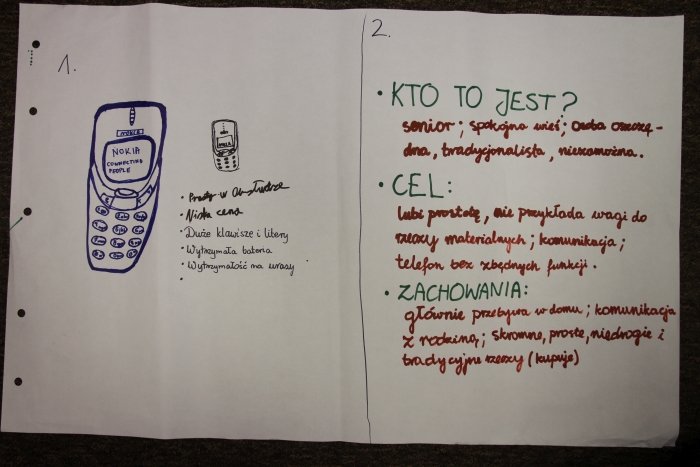 1.
NOKIA
NOKIA
CONNECTING
PEOPLE
• Prosty w obsłudze
• Niska cena
• Duże klawisze i litery
• Wytrzymała bateria
• Wytrzymałość na urazy
•
2.
• KTO TO JEST?
senior; spokojna wieś; osoba oszczę-
dna, tradycjonalista, niezamożna.
• CEL:
lubi prostotę, nie przykłada wagi do
rzeczy materialnych; komunikacja;
telefon bez zbędnych funkcji.
• ZACHOWANIA:
głównie przebywa w domu; komunikacja
z rodziną; skromne, proste, niedrogie i
tradycyjne rzeczy (kupuje)